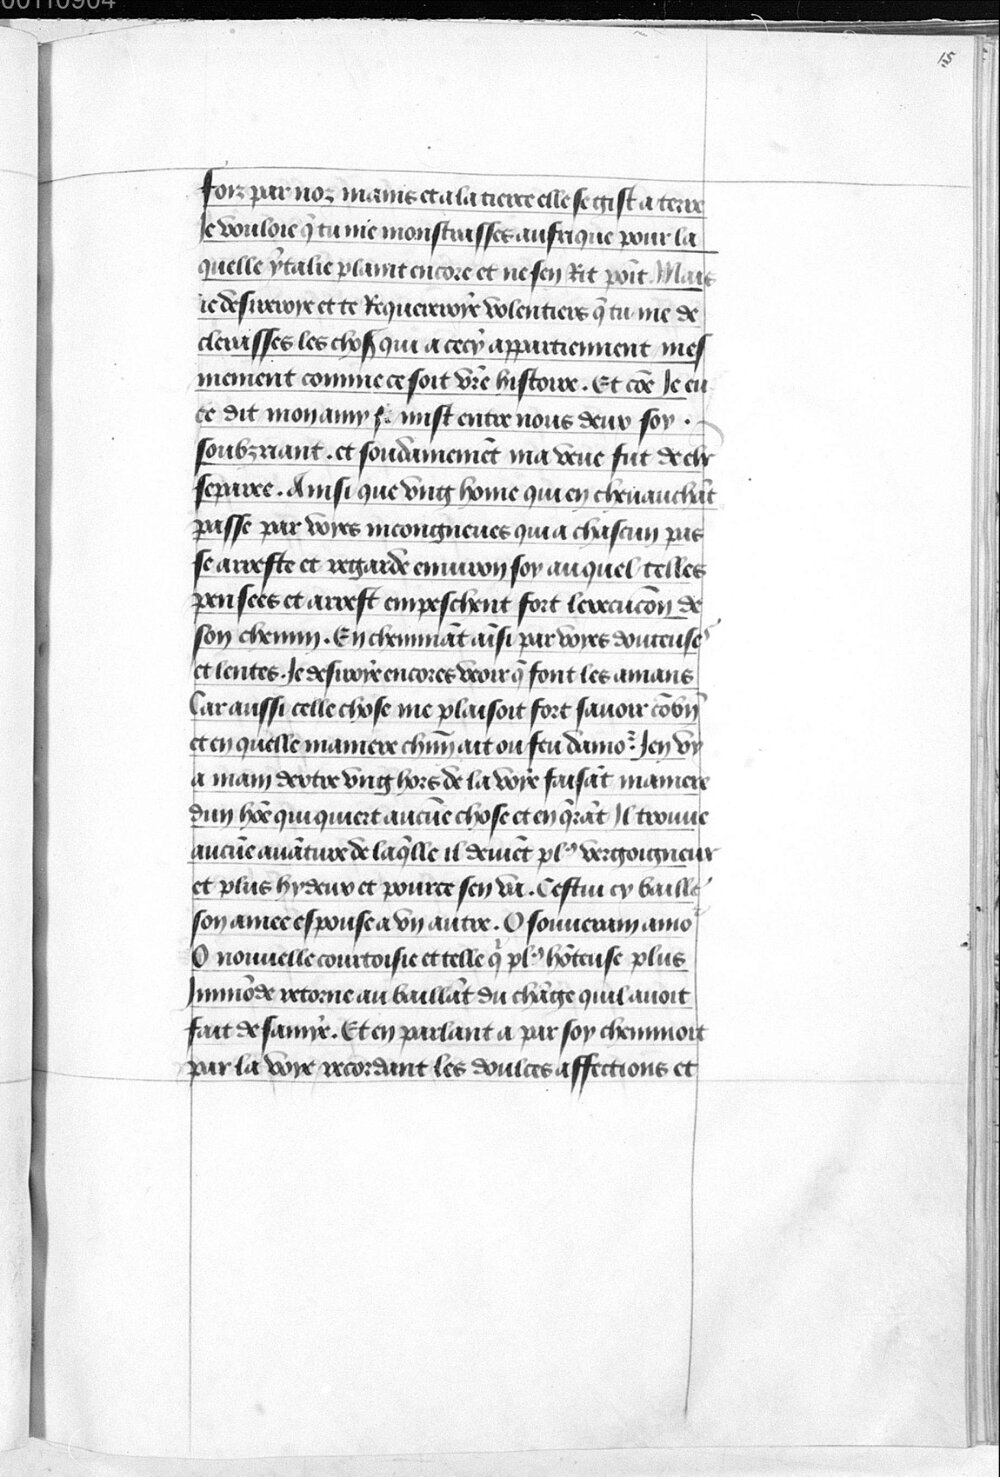 00110904
15
foiz par noz mains et a la tierce elle se gist a terre
Je vouloie q̄ tu me monstrasses aufrique pour la
quelle ytalie plaint encore et ne sen Rit poīt. Mais
ie desireroye et te Requerroye volentiers q̄ tu me de
clerasses les chos̄ qui a cecy appartiennent mes
mement comme ce soit vr̄e histoire. Et cōe Je eu
ce dit mon amy se mist entre nous deux soy .
soubzriant . et soudainemēt ma veue fut de elx
separee . Ainsi que vng home qui en cheuauchāt
passe par voyes incongneues qui a chascun pas
se arreste et regarde enuiron soy auquel telles
pensees et arrest empeschent fort lexecucōn de
son chemin . En chemināt aīsi par voyes douteuses
et lentes . Je desiroye encores veoir q̄ font les amans
Car aussi celle chose me plaisoit fort sauoir cōbn̄
et en quelle maniere chūn ait ou feu damor Jen vy
a main dextre vng hors de la voye faisāt maniere
dun hōe qui quiert aucūe chose et en q̄rāt Il trouue
aucūe auāture de laq̄lle il deuiēt pl⁹ vergoigneux
et plus hydeux et pource sen va . Cestui cy baille
son amee espouse a vn autre . O souuerain amor
O nouuelle courtoisie et telle q̄ pl⁹ hōteuse plus
Immōde retorne au baillāt du chāge quil auoit
fait de samye . Et en parlant a par soy cheminoit
par la voye recordant les doulces affections et